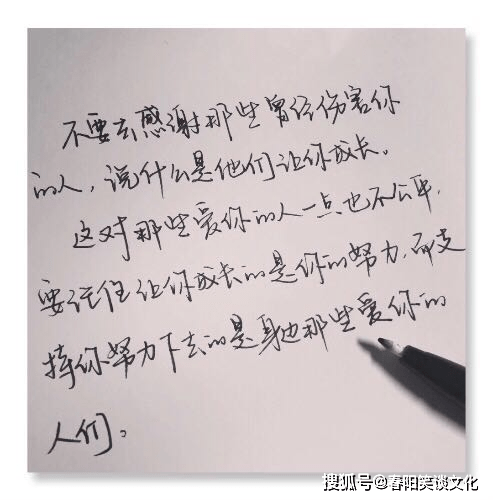 不要去感谢那些曾经伤害你
的人，说什么是他们让你成长。
这对那些爱你的人一点也不公平，
要记住让你成长的是你的努力，而支
持你努力下去的是身边那些爱你的
人们。
搜狐号@春阳笑谈文化